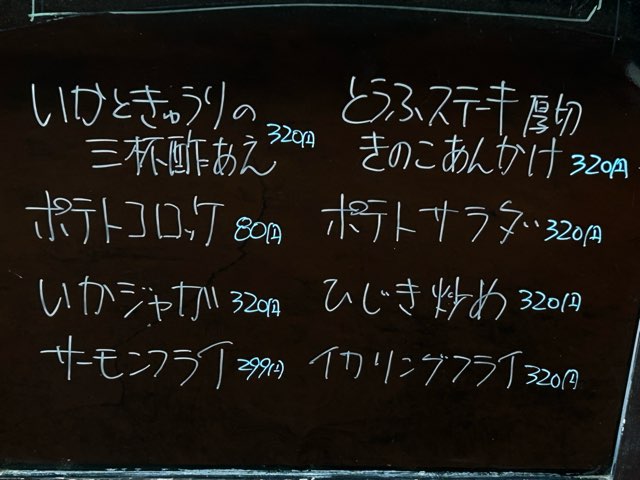 いかときゅうりの
三杯酢あえ 320円
ポテトコロッケ 80円
いかジャが 320円
サーモンフライ 299円
とうふステーキ厚切
きのこあんかけ 320円
ポテトサラダ 320円
ひじき炒め 320円
イカリングフライ 320円